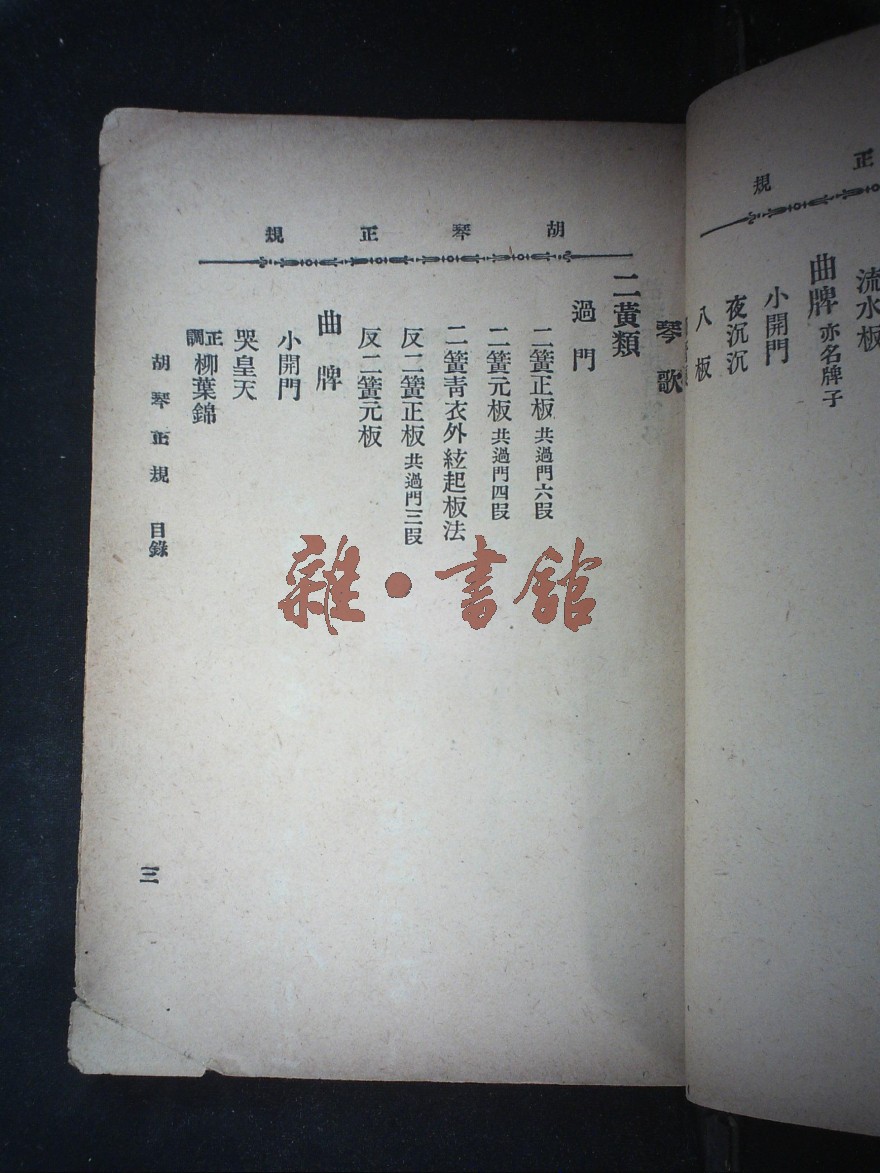 正規
流水板
曲牌 亦名牌子
小開門
夜沉沉
八板
胡琴正規
琴歌
二黃類
過門
二簧正板 共過門六叚
二簧元板 共過門四叚
二簧靑衣外絃起板法
反二簧正板 共過門三叚
反二簧元板
曲牌
小開門
哭皇天
正調 柳葉錦
胡琴正規 目錄
三
雜·書館